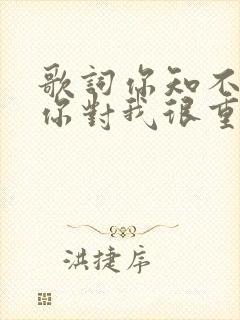 歌詞你知不
你對我很重
洪捷序